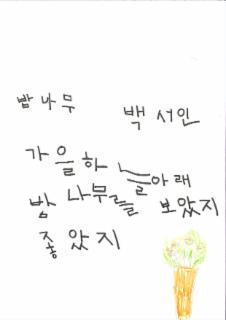 밤나무
백서인
가을하늘아래
밤나무를 보았지
좋았지